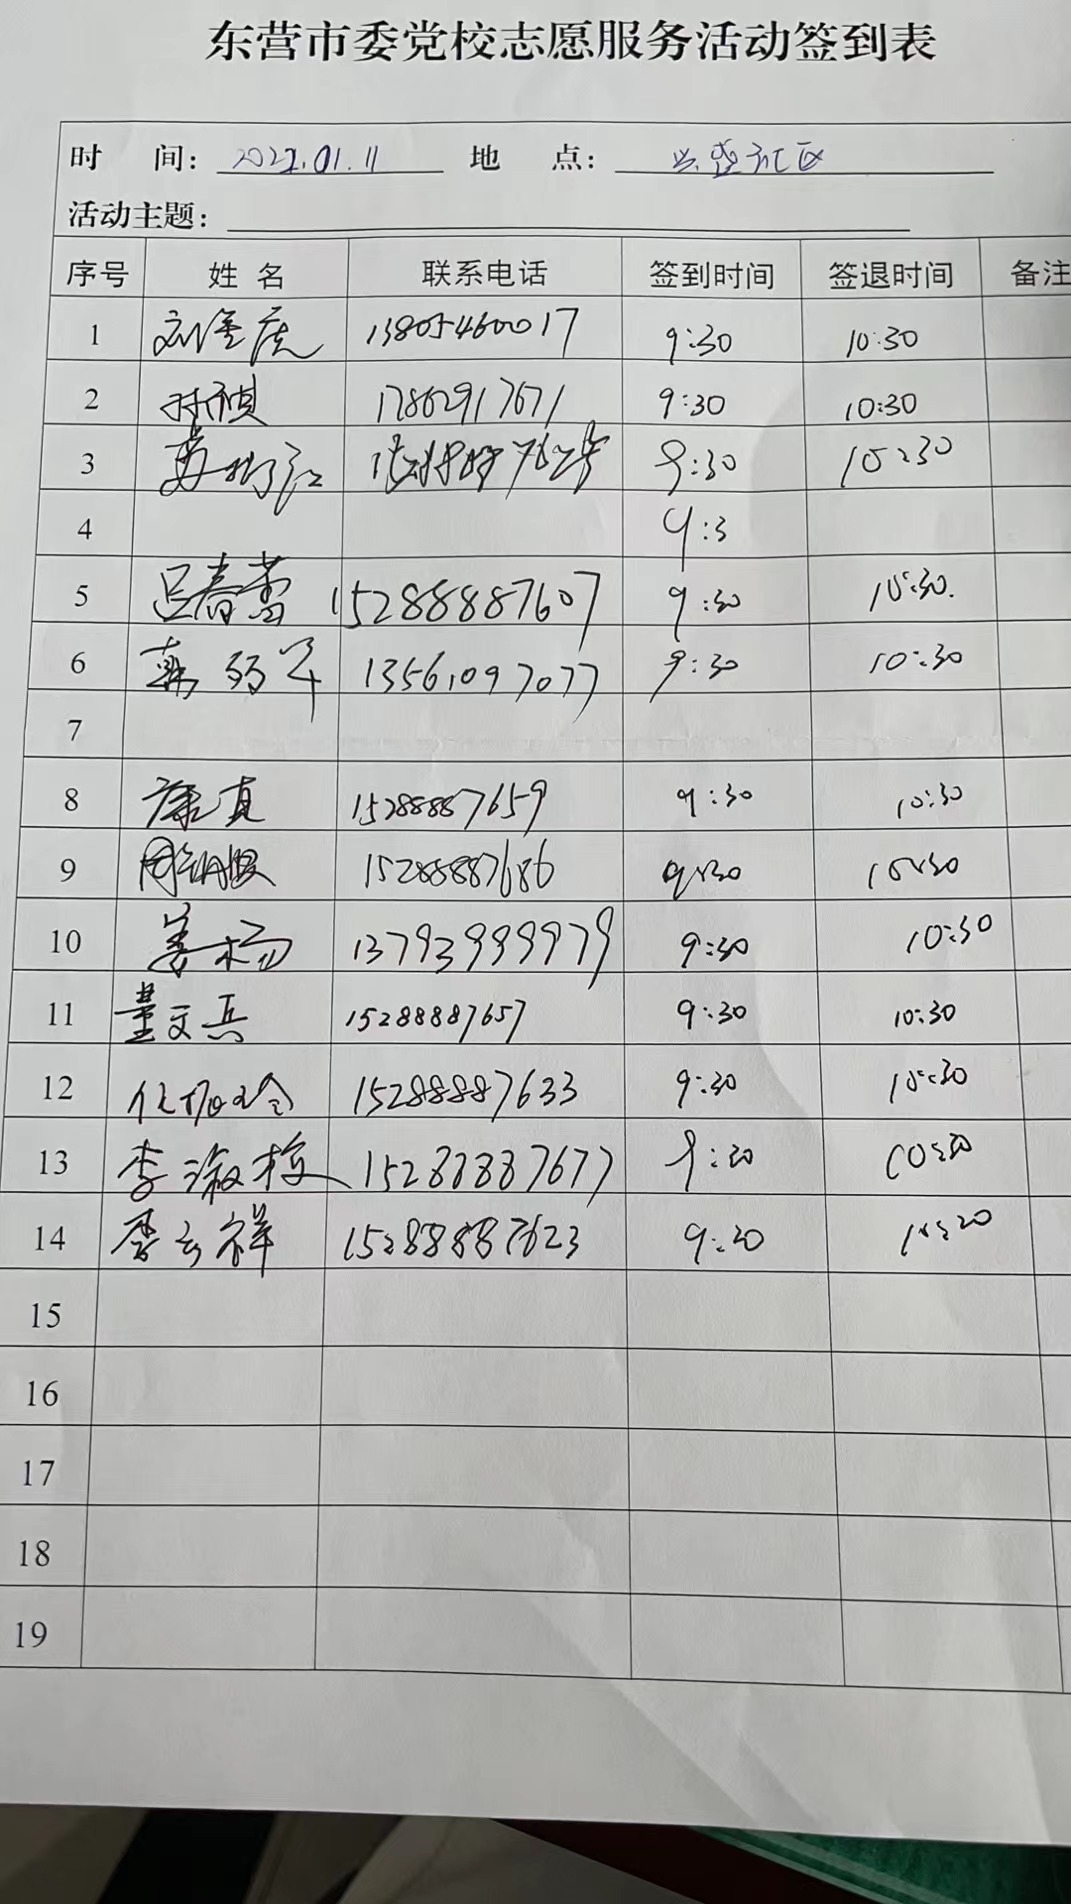 东营市委党校志愿服务活动签到表
时 间： 2022.01.11 地 点： 兴盛社区
活动主题：
序号 姓 名 联系电话 签到时间 签退时间 备注
1 13805460017 9:30 10:30
2 时祯 17862917671 9:30 10:30
3 9:30 10:30
4 9:3
5 吕春蕾 15288887607 9:30 10:30.
6 13561097077 9:30 10:30
7
8 康真 15288887659 9:30 10:30
9 15288887686 9:30 10:30
10 姜杨 13793999979 9:30 10:30
11 董文兵 15288887657 9:30 10:30
12 15288887633 9:30 10:30
13 李淑梅 15288887677 9:30 10:30
14 李云祥 15288887623 9:30 10:30
15
16
17
18
19